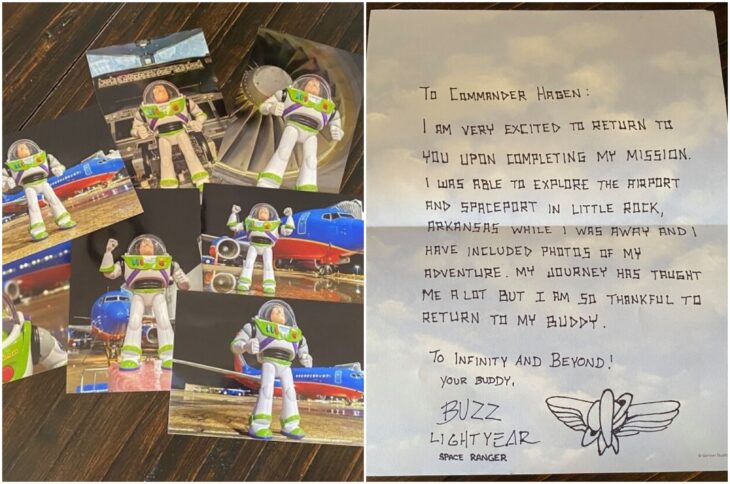 TO COMMANDER HAGEN:
I AM VERY EXCITED TO RETURN TO
YOU UPON COMPLETING MY MISSION.
I WAS ABLE TO EXPLORE THE AIRPORT
AND SPACEPORT IN LITTLE ROCK,
ARKANSAS WHILE I WAS AWAY AND I
HAVE INCLUDED PHOTOS OF MY
ADVENTURE. MY JOURNEY HAS TAUGHT
ME A LOT BUT I AM SO THANKFUL TO
RETURN TO MY BUDDY.
TO INFINITY AND BEYOND!
YOUR BUDDY,
BUZZ
LIGHTYEAR
SPACE RANGER